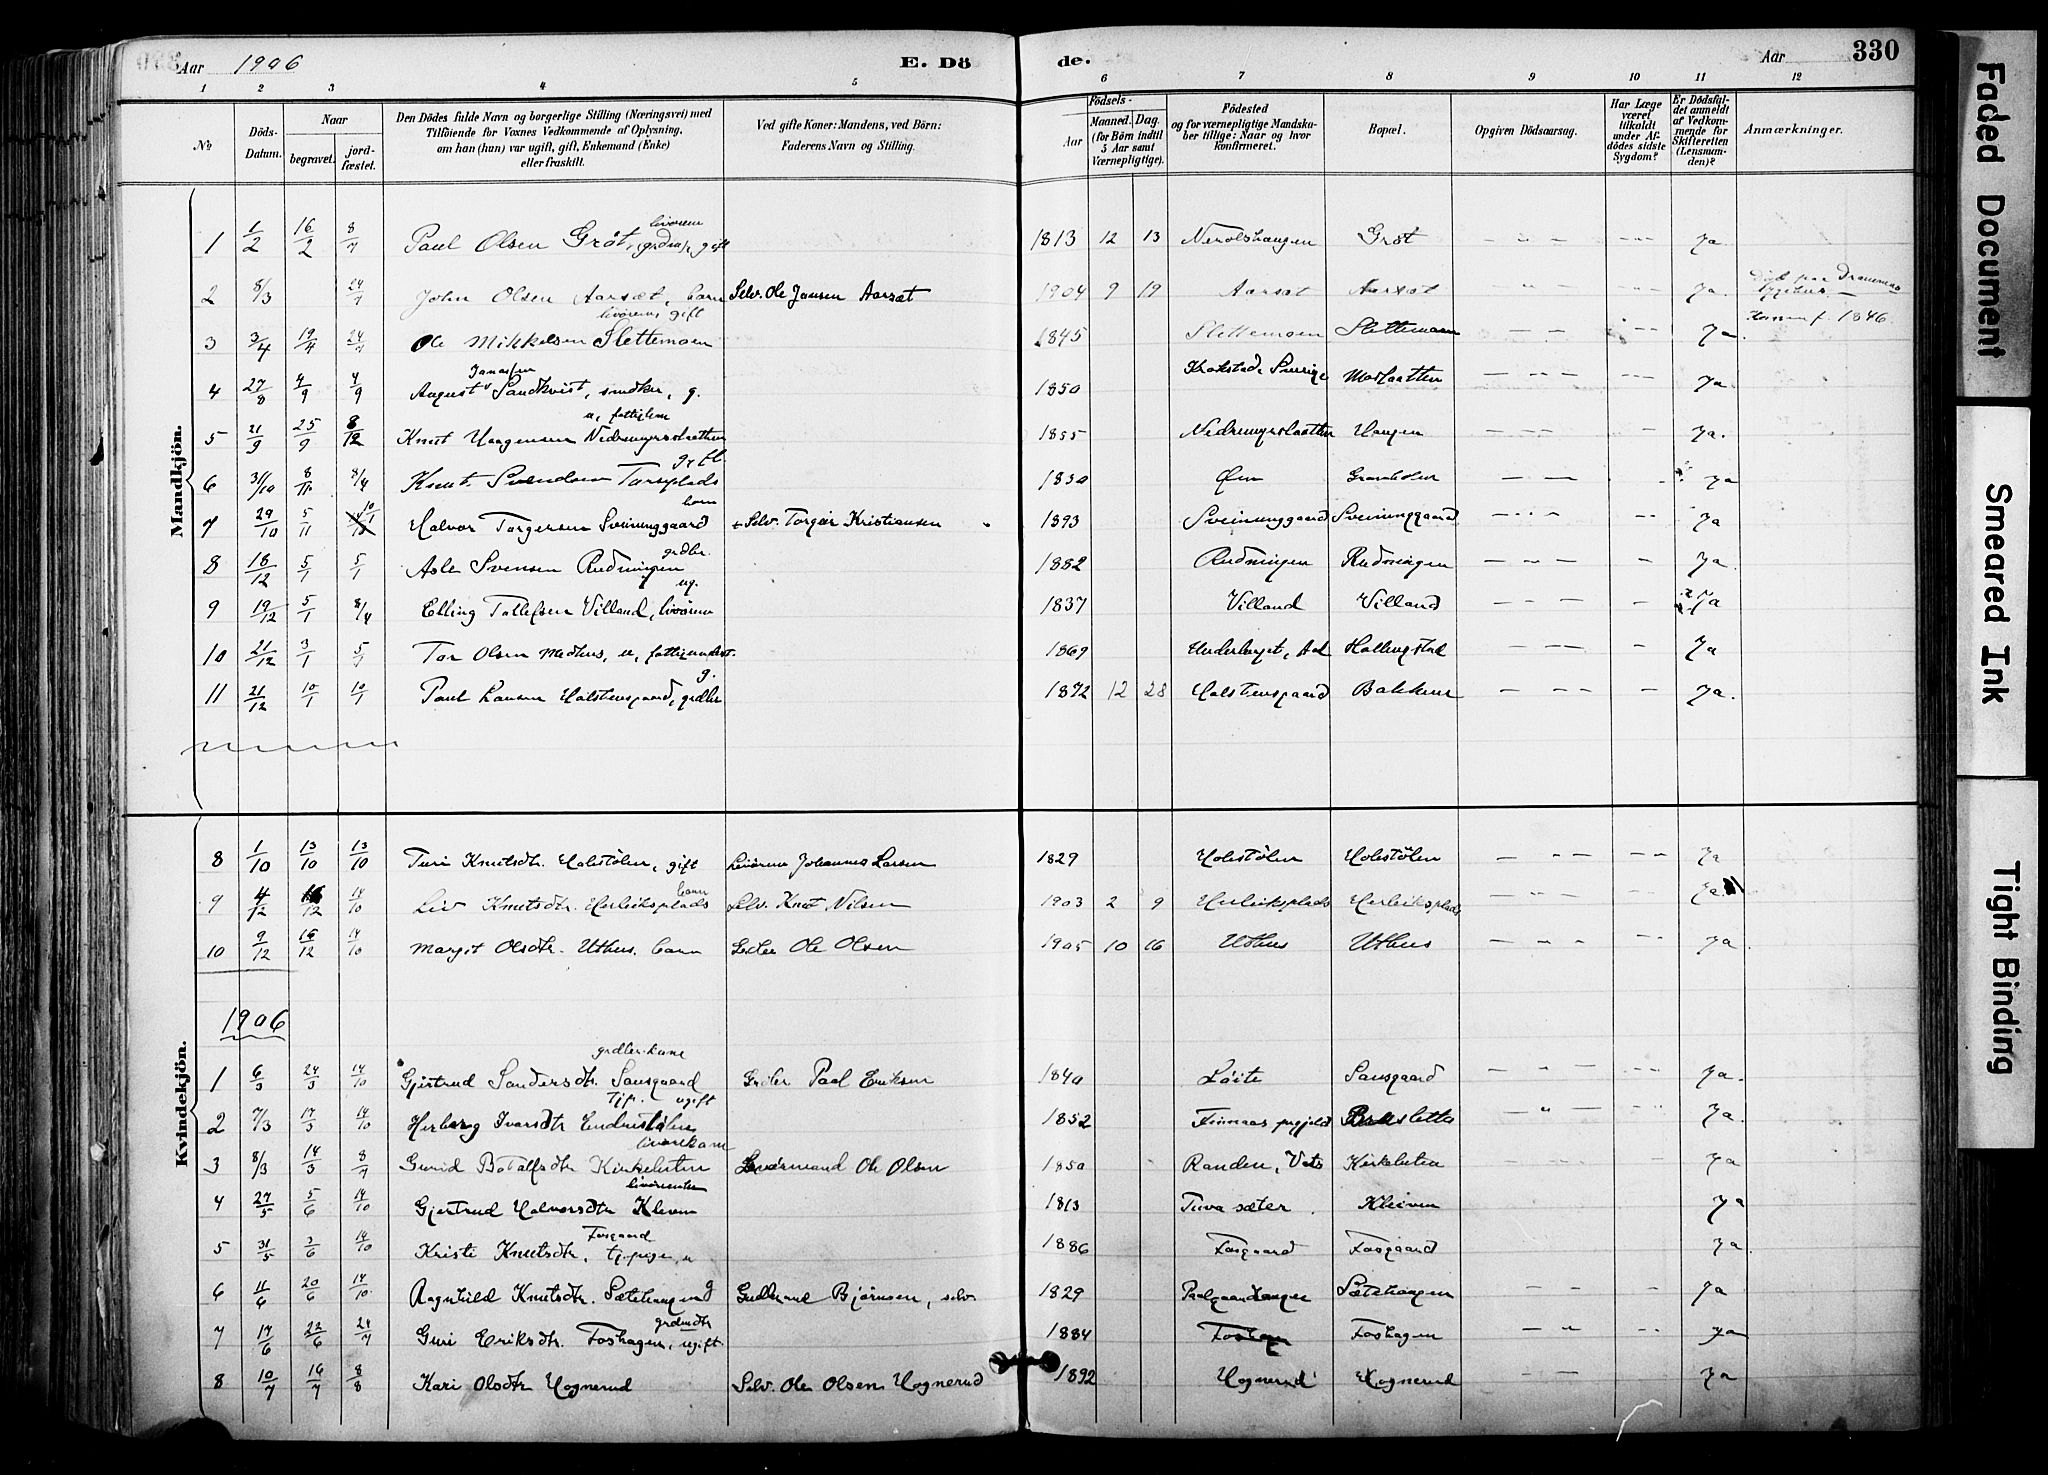 Aar 1906
E. Döde.
Aar
330
1 2 3 4 5 6 7 8 9 10 11 12
No
Döds-Datum.
Naar
begravet.
jord-fæstet.
Den Dödes fulde Navn og borgerlige Stilling (Næringsvei) med
Tilföiende for Voxnes Vedkommende af Oplysning,
om han (hun) var ugift, gift, Enkemand (Enke)
eller fraskilt.
Ved gifte Koner: Mandens, ved Börn:
Faderens Navn og Stilling.
Födsels-
Aar
Maaned. Dag.
(for Börn indtil
5 Aar samt
Værnepligtige).
Födested
og for værnepligtige Mandska-
ber tillige: Naar og hvor
konfirmeret.
Bopæl.
Opgiven Dödsaarsag.
Har Læge
været
tilkaldt
under Af-
dödes sidste
Sygdom?
Er Dödsfal-
det anmeldt
af Vedkom-
mende for
Skifteretten
(Lensman-
den)?
Anmærkninger.
Mandkjön.
1 1/2 16/2 8/7 Paul Olsen Gröt, gift 1813 12 13 Gröt - " - - " - ja
2 8/3 24/7 John Olsen Aarsæt, barn Selv. Ole Jansen Aarsæt 1904 9 19 Aarsæt Aarsæt - " - - " - ja. Död paa Drammens sygehus.
livörems gift
3 3/4 19/4 24/7 Ole Mikkelsen Slettemoen 1845 Slettemoen Slettemoen - " - - " - ja. 1846
4 27/8 4/9 4/9 August Sandkvist, snedker, g. 1850 Krokstad, Sverige - " - - " - ja
5 21/9 25/9 8/12 Knut Haagensen 1855 Haugen - " - ja.
6 31/10 8/11 8/4 Knut Svendsen Torsplads 1850 Øen - - - ja
barn
7 29/10 5/11 10/1 Halvor Torgersen Sveinunggaard Selv. Torgeir Kristiansen 1893 Sveinunggaard Sveinunggaard - " - - ja
grdbr.
8 18/12 5/1 5/1 Asle Svensen Rudningen 1882 Rudningen Rudningen - " - - ja.
ug.
9 19/12 5/1 8/4 Elling Tollefsen Villand, 1837 Villand Villand - " - - ja
10 21/12 3/1 5/1 Tor Olsen Medhus, u, 1869 Aal Hallingstad - - - ja
g.
11 21/12 10/1 10/1 Paul Larsen Halstensgaard, grdbr 1872 12 28 Halstensgaard Bakken - - - ja.
Kvindekjön.
8 1/10 13/10 13/10 Turi Knutsdtr. Holestölen, gift Johannes Larsen 1829 Holestölen Holestölen - " - - " - ja
barn
9 4/12 16/12 14/10 Liv Knutsdtr. Herleiksplads Selv. Knut Nilsen 1903 2 9 Herleiksplads Herleiksplads - " - - " - ja.
10 9/12 16/12 14/10 Margit Olsdtr. Uthus, barn Ole Olsen 1905 10 16 Uthus Uthus - " - - " - ja.
1906
grdbr.kone
1 6/3 24/3 14/10 Gjertrud Sandersdtr. Sansgaard Grdbr Paal Eriksen 1840 Löite Sansgaard - " - - " - ja.
tjp. ugift
2 7/3 17/3 14/10 Herborg Ivarsdtr Endrestölen 1852 Finnaas prgjeld - " - - " - ja.
3 8/3 14/3 8/7 Gunid Botolfsdtr Kirkelien Livörmand Ole Olsen 1850 Kirkelien - " - - " - ja
4 27/5 5/6 14/10 Gjertrud Halvorsdtr Kleven 1813 Tuva sæter Kleiven ja
Fosgaard
5 31/5 3/6 14/10 Kristi Knutsdtr, tj.pige, u 1886 Fosgaard Fosgaard ja.
6 11/6 20/6 14/10 Ragnhild Knutsdtr. Sætehaugen g Gudbrand Björnsen, selv. 1829 Sætehaugen - " - - " - ja
7 17/6 22/6 24/7 Guri Eriksdtr. Foshagen, ugift. 1884 Foshagen - " - - " - ja
8 10/7 16/7 8/8 Kari Olsdtr Hognerud Selv. Ole Olsen Hognerud 1892 Hognerud Hognerud - " - ja
Faded Document
Smeared Ink
Tight Binding